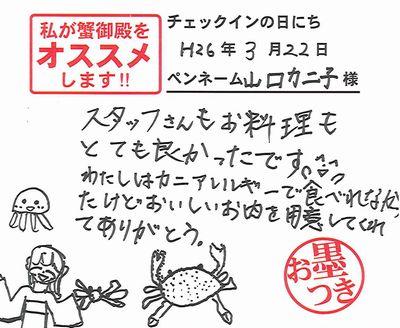 私が蟹御殿を
オススメ
します!!
チェックインの日にち
H26年3月22日
ペンネーム山口カニ子様
スタッフさんもお料理も
とても良かったです。
わたしはカニアレルギーで食べれなかっ
たけどおいしいお肉を用意してくれ
てありがとう。
お墨つき